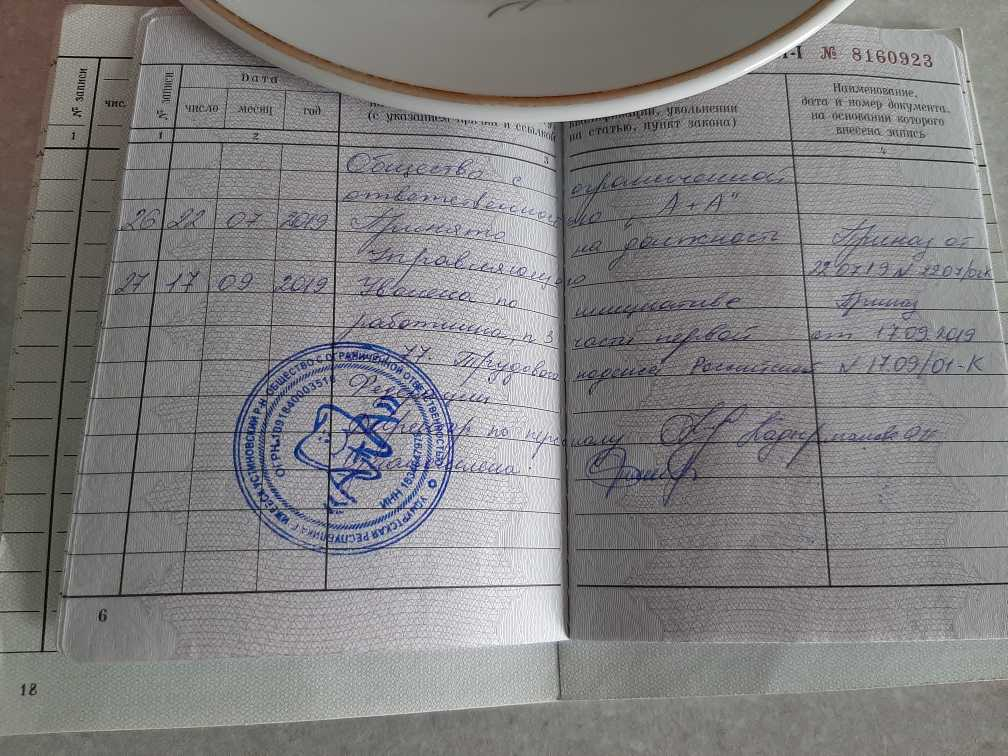 № 8160923
№ записи
Дата
число
месяц
год
(с указанием причин и ссылкой на статью, пункт закона)
увольнении
Наименование,
дата и номер документа,
на основании которого
внесена запись
№ записи
чис.
1
1
2
3
4
Общество с ограниченной
ответственностью "А+А"
26 22 07 2019 Принята на должность Приказ от
Управляющего 22.07.19 №
27 17 09 2019 Уволена по инициативе Приказ
работника, п. 3 части первой от 17.09.2019
77 Трудового кодекса Российской № 17.09/01-К
Федерации
Директор по персоналу
ОБЩЕСТВО С ОГРАНИЧЕННОЙ ОТВЕТСТВЕННОСТЬЮ
УДМУРТСКАЯ РЕСПУБЛИКА
ОГРН
ИНН
6
18